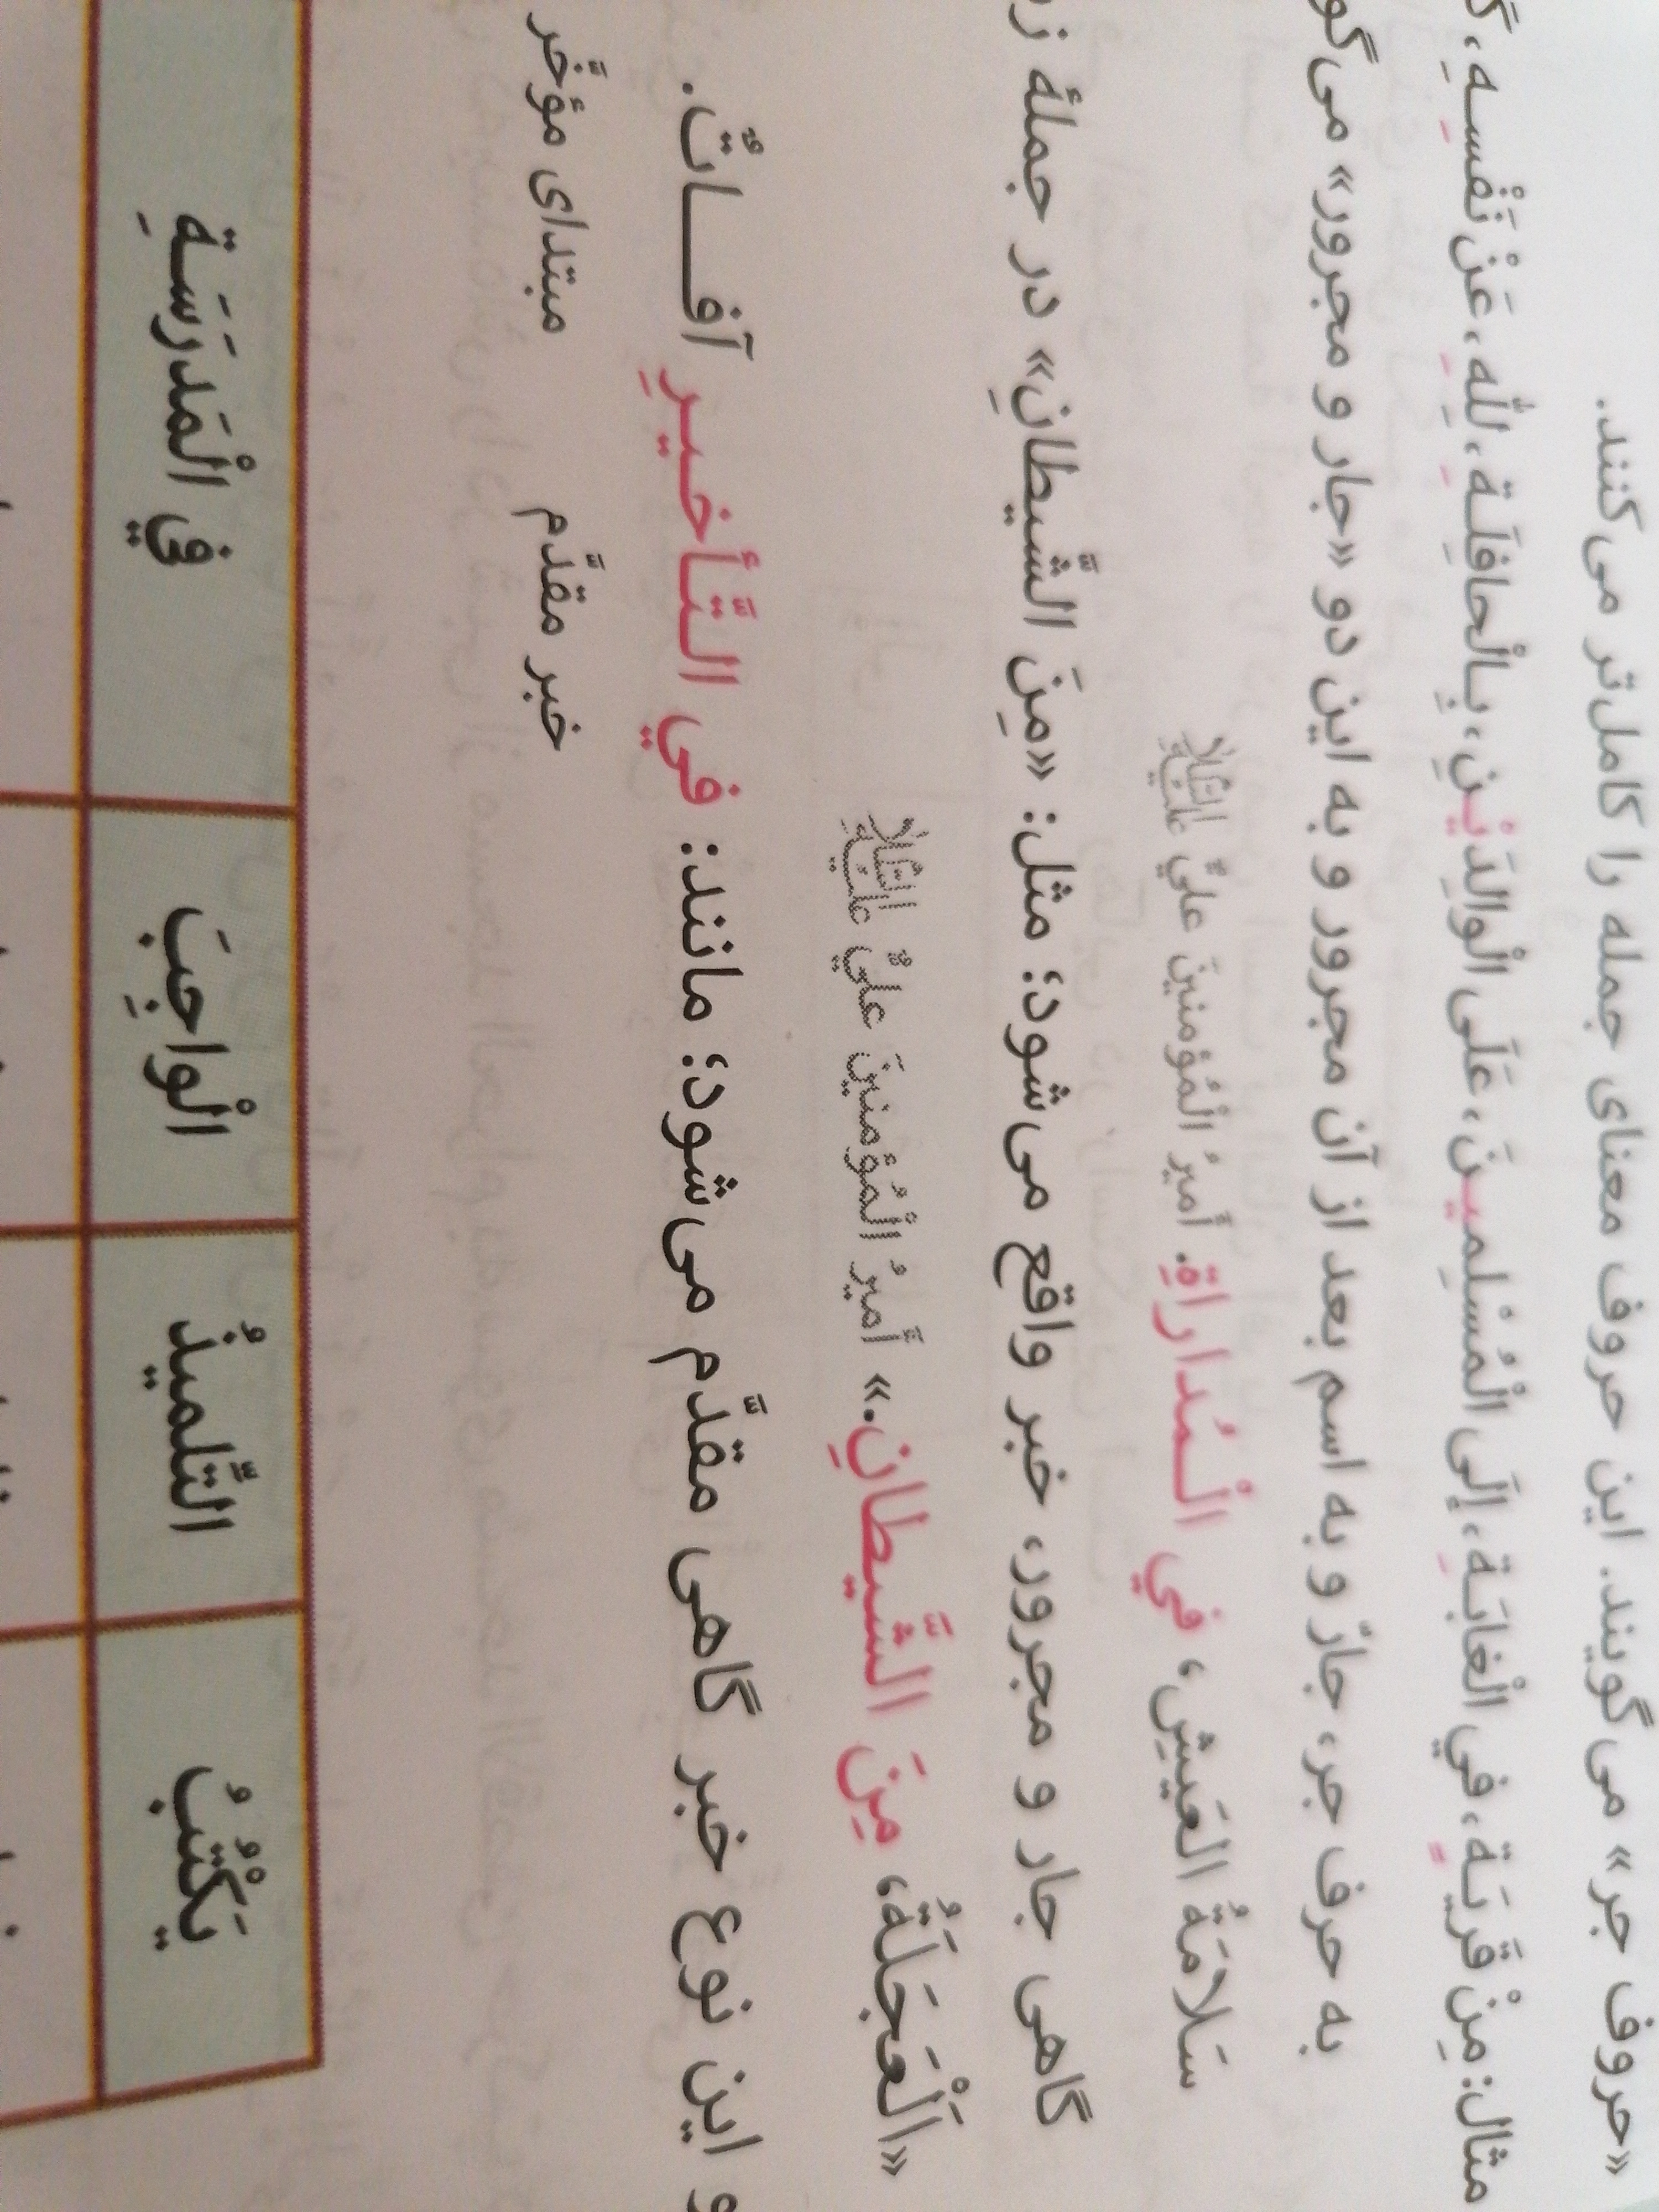 «حروف جر» می‌گویند. این حروف معنای جمله را کامل‌تر می‌کنند.
مثال: مِنْ قَریَةٍ، في الْغابَةِ، إلَی الْمُسْلِمینَ، عَلَی الْوالِدَیْنِ، بِالْحافِلَةِ، لِلّٰهِ، عَنْ نَفْسِهِ،
به حرف جر، جارّ و به اسم بعد از آن مجرور و به این دو «جار و مجرور» می‌گو
سَلامَةُ العَیشِ، في الْمُداراةِ. أمیرُ الْمُؤمنینَ عليٌّ عَلَيْهِ السَّلَامُ
گاهی جار و مجرور، خبر واقع می‌شود؛ مثل: «مِنَ الشَّیطانِ» در جملهٔ
«اَلْعَجَلَةُ، مِنَ الشَّیطانِ.» أمیرُ الْمُؤمنینَ عليٌّ عَلَيْهِ السَّلَامُ
و این نوع خبر گاهی مقدّم می‌شود؛ مانند: في التَّأخیرِ آفـاتٌ.
خبر مقدّم مبتدای مؤخّر
یَکْتُبُ التِّلمیذُ الْواجِبَ فِي الْمَدرَسَةِ